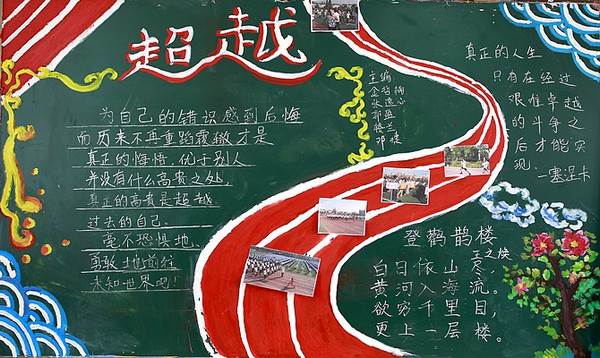 超越
为自己的错识感到后悔
而历来不再重蹈覆辙才是
真正的悔悟.优于别人
并没有什么高贵之处,
真正的高贵是超越
过去的自己.
毫不恐惧地、
勇敢地前往
未知世界吧!
主编
张逸心
郭盈
楼兰
真正的人生
只有在经过
艰难卓越
的斗争之
后才能实
现.
—塞涅卡
登鹳鹊楼
王之涣
白日依山尽,
黄河入海流。
欲穷千里目,
更上一层楼。